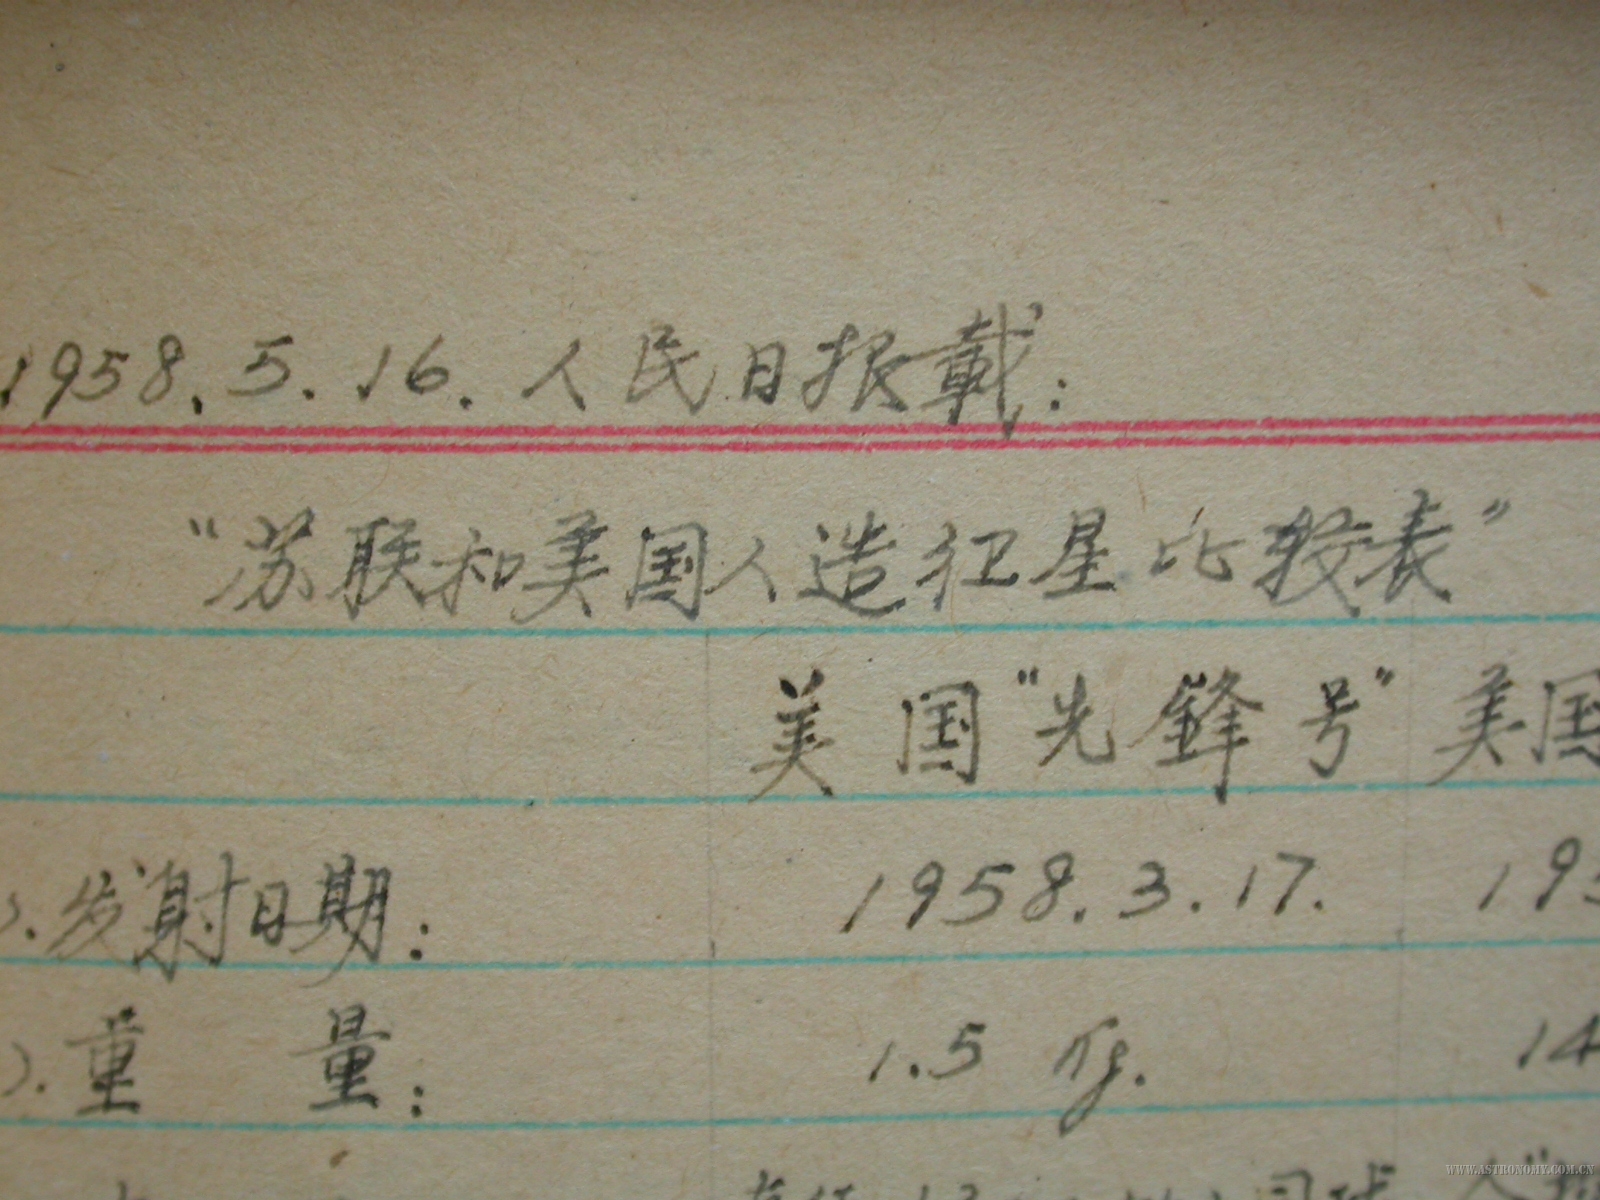 1958.5.16.人民日报载:
"苏联和美国人造卫星比较表"
美国"先鋒号" 美国
).发射日期: 1958.3.17. 195
).重 量: 1.5 Kg. 14
WWW.ASTRONOMY.COM.CN